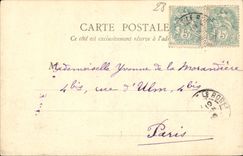 23
CARTE POSTALE
Ce côté est exclusivement réservé à l'adresse
Mademoiselle Yvonne de la Morandière
4 bis, rue d'Ulm, 4 bis
Paris